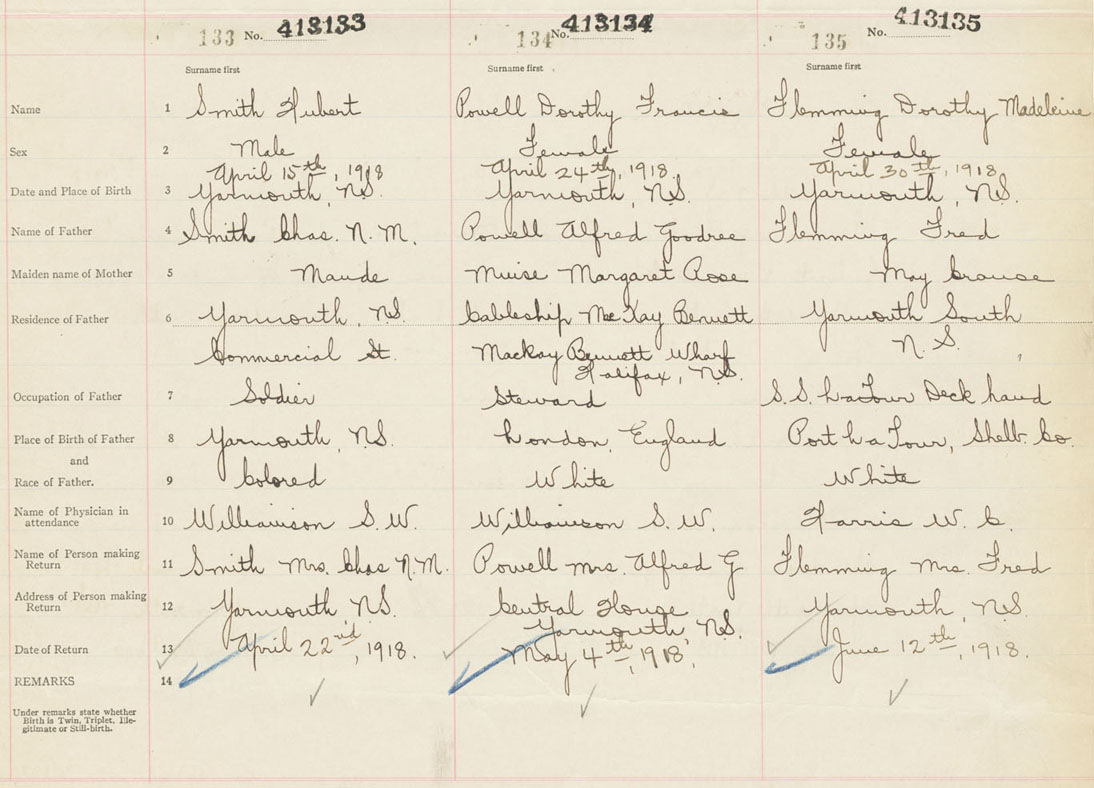 133 No. 413133 134 No. 413134 135 No. 413135
Surname first Surname first Surname first
Name 1 Smith Hubert Powell Dorothy Francis Flemming Dorothy Madeleine
Sex 2 Male Female Female
April 15th, 1918 April 24th, 1918. April 30th, 1918
Date and Place of Birth 3 Yarmouth, N.S. Yarmouth, N.S. Yarmouth, N.S.
Name of Father 4 Smith Chas. N. M. Powell Alfred Goodree Flemming Fred
Maiden name of Mother 5 Maude Muise Margaret Rose May Crouse
Residence of Father 6 Yarmouth, N.S. Cableship MacKay Bennett Yarmouth South
Commercial St. Mackay Bennett Wharf N. S.
Halifax, N.S.
Occupation of Father 7 Soldier Steward S.S. LaTour Deck hand
Place of Birth of Father 8 Yarmouth, N.S. London, England Port La Tour, Shelb. Co.
and
Race of Father. 9 Colored White White
Name of Physician in
attendance 10 Williamson S. W. Williamson S. W. Harris W. C.
Name of Person making
Return 11 Smith Mrs. Chas N.M. Powell Mrs. Alfred G Flemming Mrs. Fred
Address of Person making
Return 12 Yarmouth N.S. Central House Yarmouth, N.S.
Yarmouth, N.S.
Date of Return 13 April 22nd, 1918. May 4th, 1918, June 12th, 1918.
REMARKS 14
Under remarks state whether
Birth is Twin, Triplet, Ille-
gitimate or Still-birth.